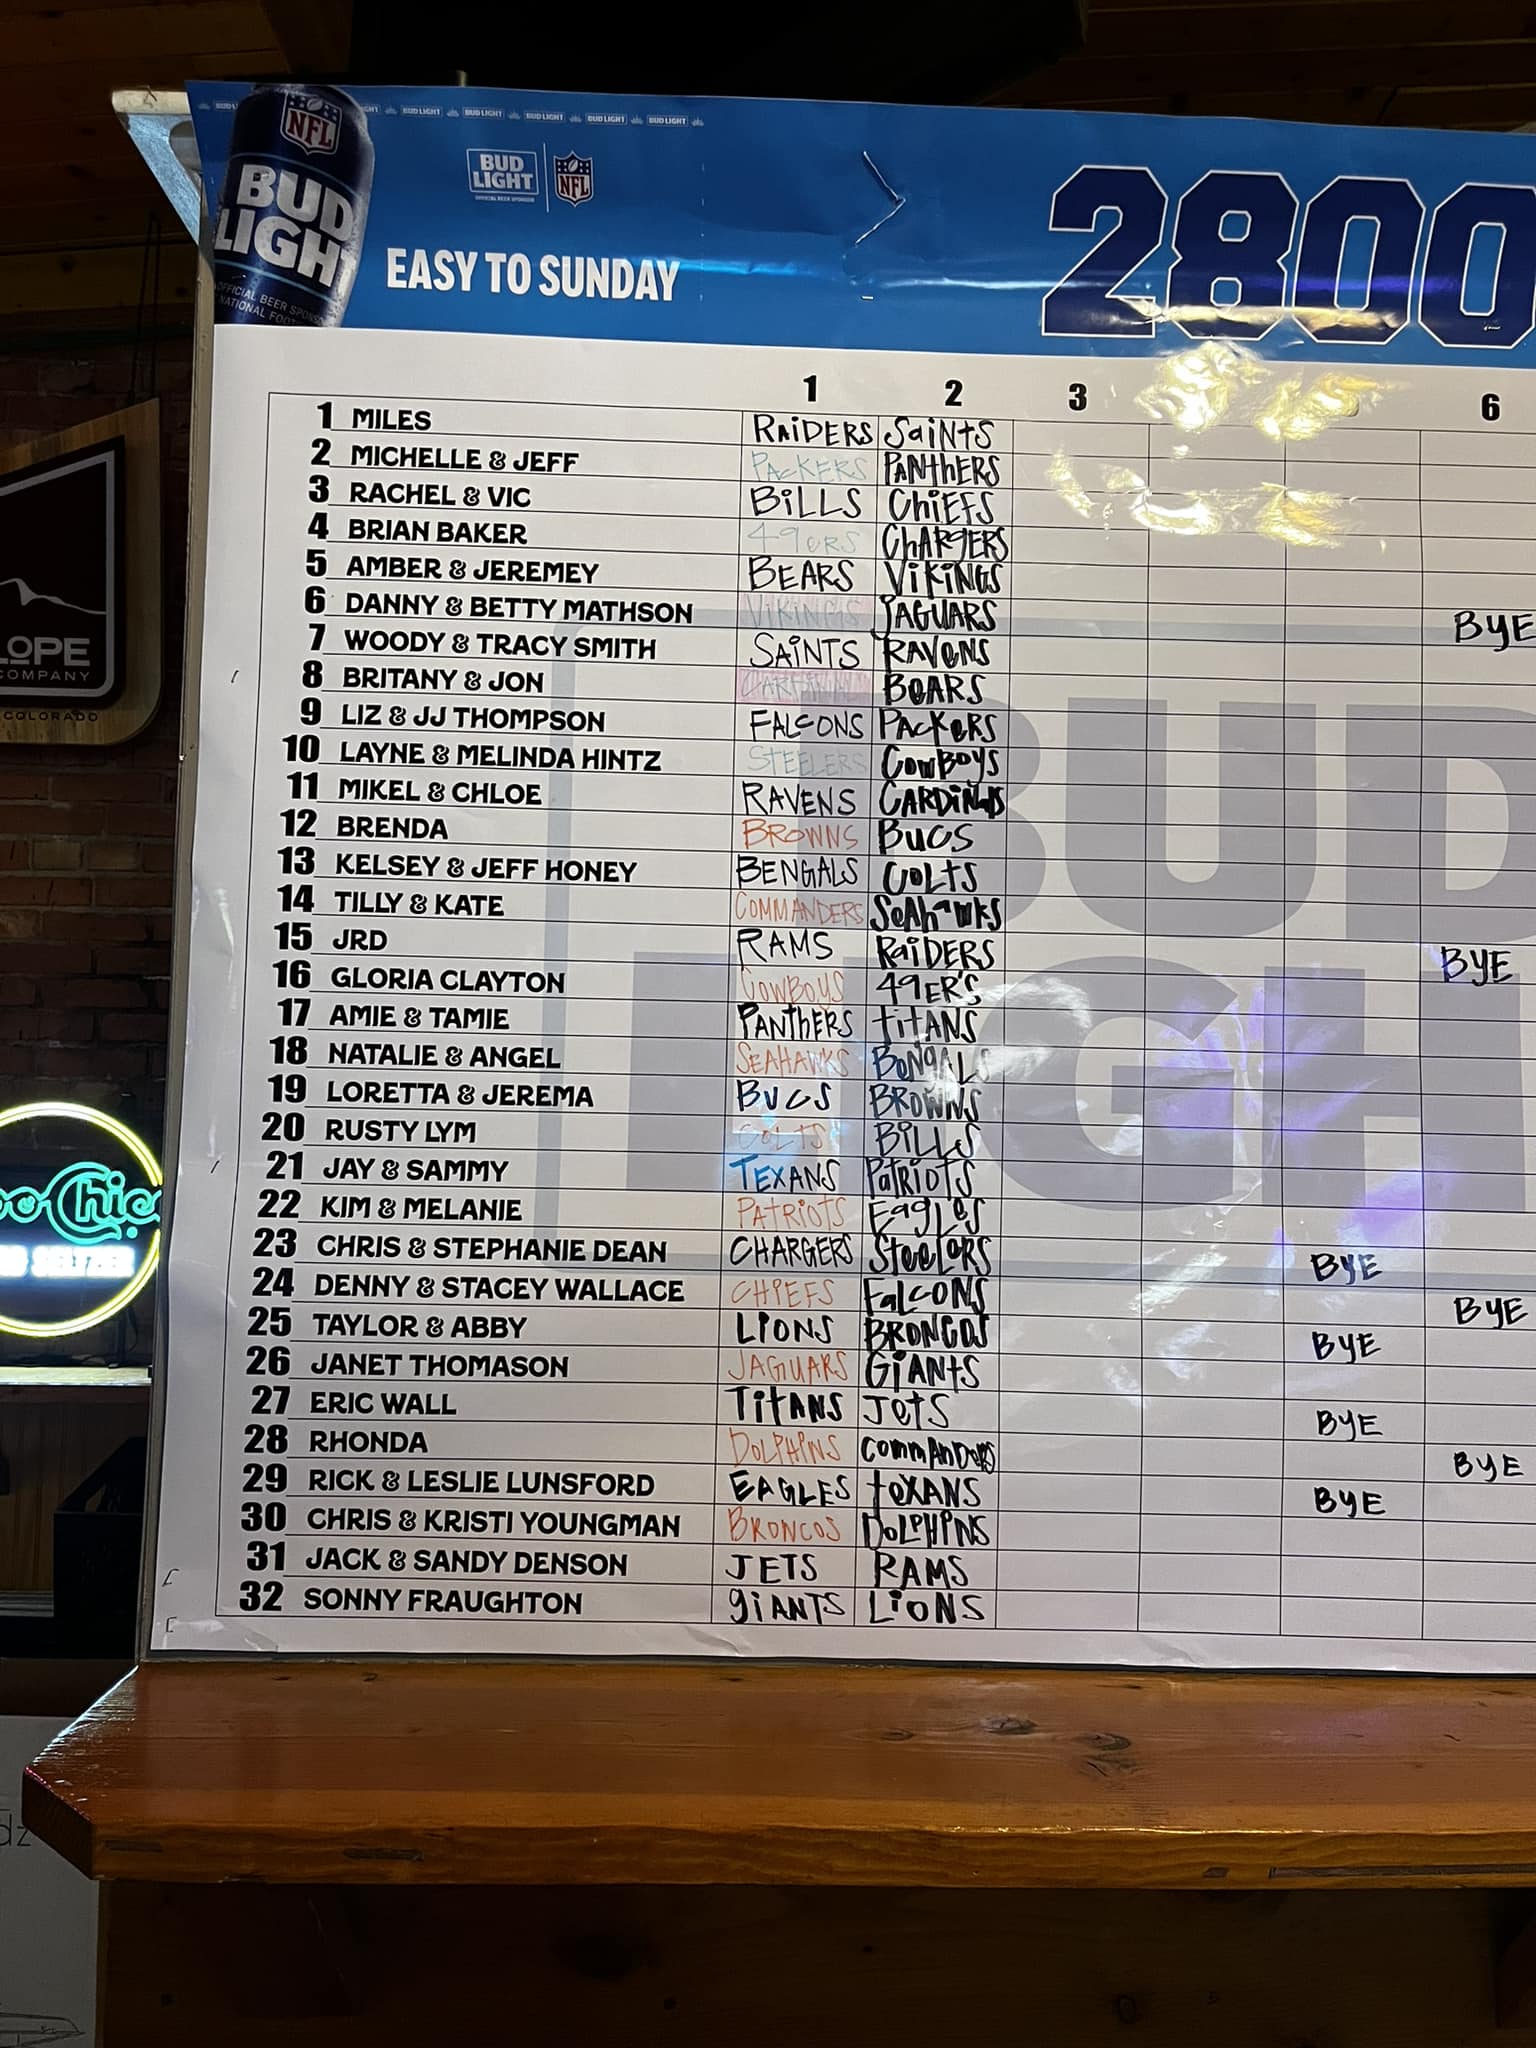 NFL
BUD LIGHT BUD LIGHT BUD LIGHT BUD LIGHT BUD LIGHT
BUD LIGHT
OFFICIAL BEER SPONSOR
NFL
BUD
LIGHT
EASY TO SUNDAY
2800
1 2 3 6
1 MILES RAiDERS SaiNtS
2 MICHELLE & JEFF PAcKERS PANthERS
3 RACHEL & VIC BiLLS ChiEFS
4 BRIAN BAKER 49eRS ChARgERS
5 AMBER & JEREMEY BEARS ViKiNGS
6 DANNY & BETTY MATHSON ViKiNGS JAGUARS BYE
7 WOODY & TRACY SMITH SAiNTS RAVeNS
8 BRITANY & JON BeARS
9 LIZ & JJ THOMPSON FALCONS PAckeRS
10 LAYNE & MELINDA HINTZ STEELERS CowBoys
11 MIKEL & CHLOE RAVENS CARDiNals
12 BRENDA BROWNS BuCS
13 KELSEY & JEFF HONEY BENGALS COLtS
14 TILLY & KATE COMMANDERS SeAhawkS
15 JRD RAMS RaiDERS BYE
16 GLORIA CLAYTON COWBOYS 49ER'S
17 AMIE & TAMIE PANthERS titANS
18 NATALIE & ANGEL SEAHAWKS BeNgALS
19 LORETTA & JEREMA BUCS BROWNS
20 RUSTY LYM COLTS BiLLS
21 JAY & SAMMY TEXANS PatRiOTS
22 KIM & MELANIE PATRiOTS EagLeS
23 CHRIS & STEPHANIE DEAN CHARGERS SteeLeRS BYE
24 DENNY & STACEY WALLACE CHiEFS FaLcONS BYE
25 TAYLOR & ABBY LiONS BRONCOS BYE
26 JANET THOMASON JAGUARS GiANtS
27 ERIC WALL TitANS JetS BYE
28 RHONDA DOLPHiNS CommAnDeRS BYE
29 RICK & LESLIE LUNSFORD EAGLES teXANS BYE
30 CHRIS & KRISTI YOUNGMAN BRONCOS DOLPHiNS
31 JACK & SANDY DENSON JETS RAMS
32 SONNY FRAUGHTON giANTS LiONS
BUD
LIGH
COMPANY
COLORADO
Chic
SELTZER